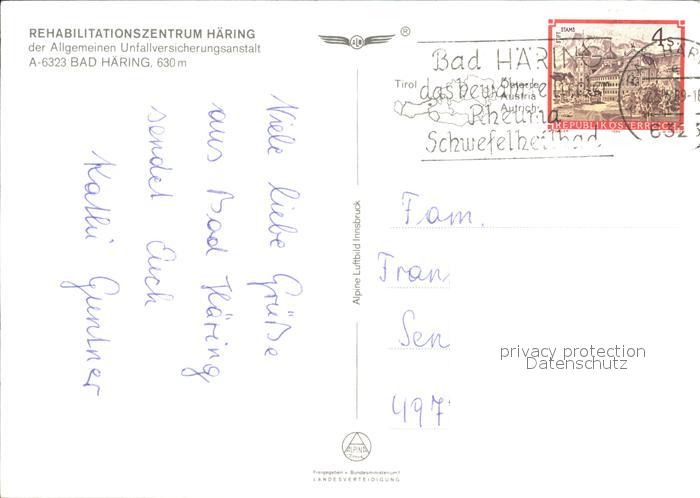 REHABILITATIONSZENTRUM HÄRING
der Allgemeinen Unfallversicherungsanstalt
A-6323 BAD HÄRING, 630 m
Viele liebe Grüße
aus Bad Häring
sendet Euch
Kathi Guntner
Alpine Luftbild Innsbruck
®
Tirol
Österreich
Austria
Autriche
Bad HÄRING
das bewährte
Rheuma-
Schwefelheilbad
STIFT STAMS
4 S
REPUBLIK ÖSTERREICH
6323
Fam.
Fran
Sen
497
privacy protection
Datenschutz
ALPINE
Freigegeben v. Bundesministerium f.
LANDESVERTEIDIGUNG